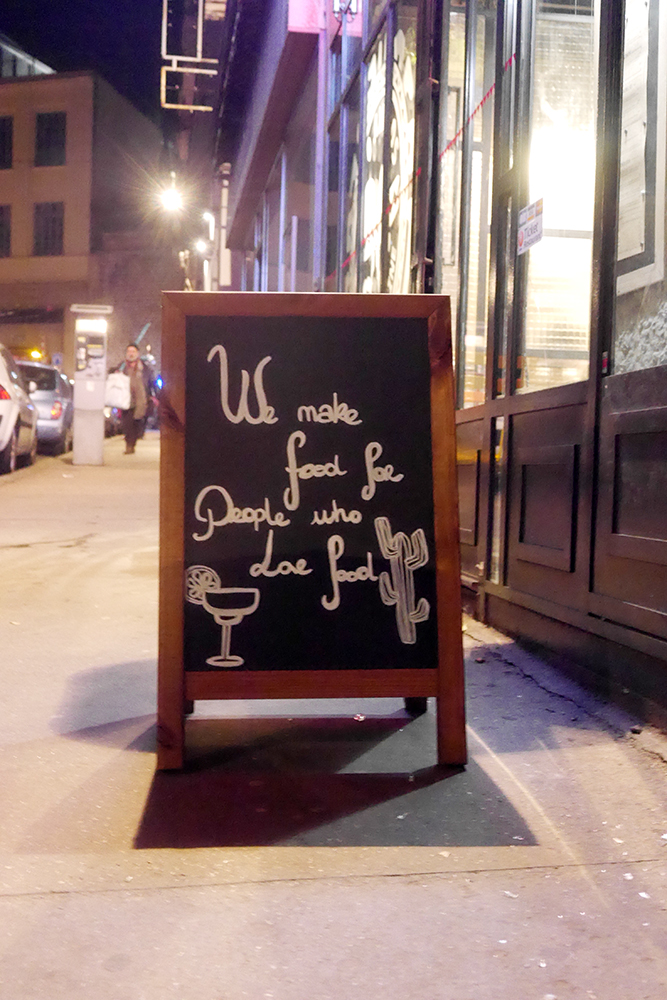 We make
food for
People who
Love food
Ticket